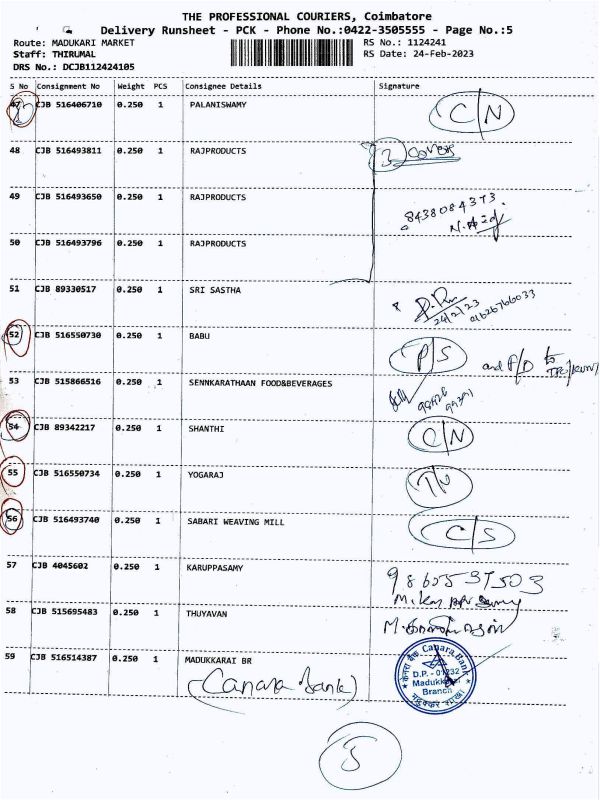 THE PROFESSIONAL COURIERS, Coimbatore
Delivery Runsheet - PCK - Phone No.:0422-3505555 - Page No.:5
Route: MADUKARI MARKET RS No.: 1124241
Staff: THIRUMAL RS Date: 24-Feb-2023
DRS No.: DCJB112424105
S No Consignment No Weight PCS Consignee Details Signature
47 CJB 516406710 0.250 1 PALANISWAMY C/N
48 CJB 516493811 0.250 1 RAJPRODUCTS 3 covers
49 CJB 516493650 0.250 1 RAJPRODUCTS 8438084373
50 CJB 516493796 0.250 1 RAJPRODUCTS
51 CJB 89330517 0.250 1 SRI SASTHA 24/2/23
52 CJB 516550730 0.250 1 BABU P/S and P/D to
53 CJB 515866516 0.250 1 SENNKARATHAAN FOOD&BEVERAGES
54 CJB 89342217 0.250 1 SHANTHI
55 CJB 516550734 0.250 1 YOGARAJ
56 CJB 516493740 0.250 1 SABARI WEAVING MILL C/S
57 CJB 4045602 0.250 1 KARUPPASAMY
58 CJB 515695483 0.250 1 THUYAVAN
59 CJB 516514387 0.250 1 MADUKKARAI BR
(Canara Bank)
केनरा बैंक Canara Bank
D.P. - 01232
Branch
5